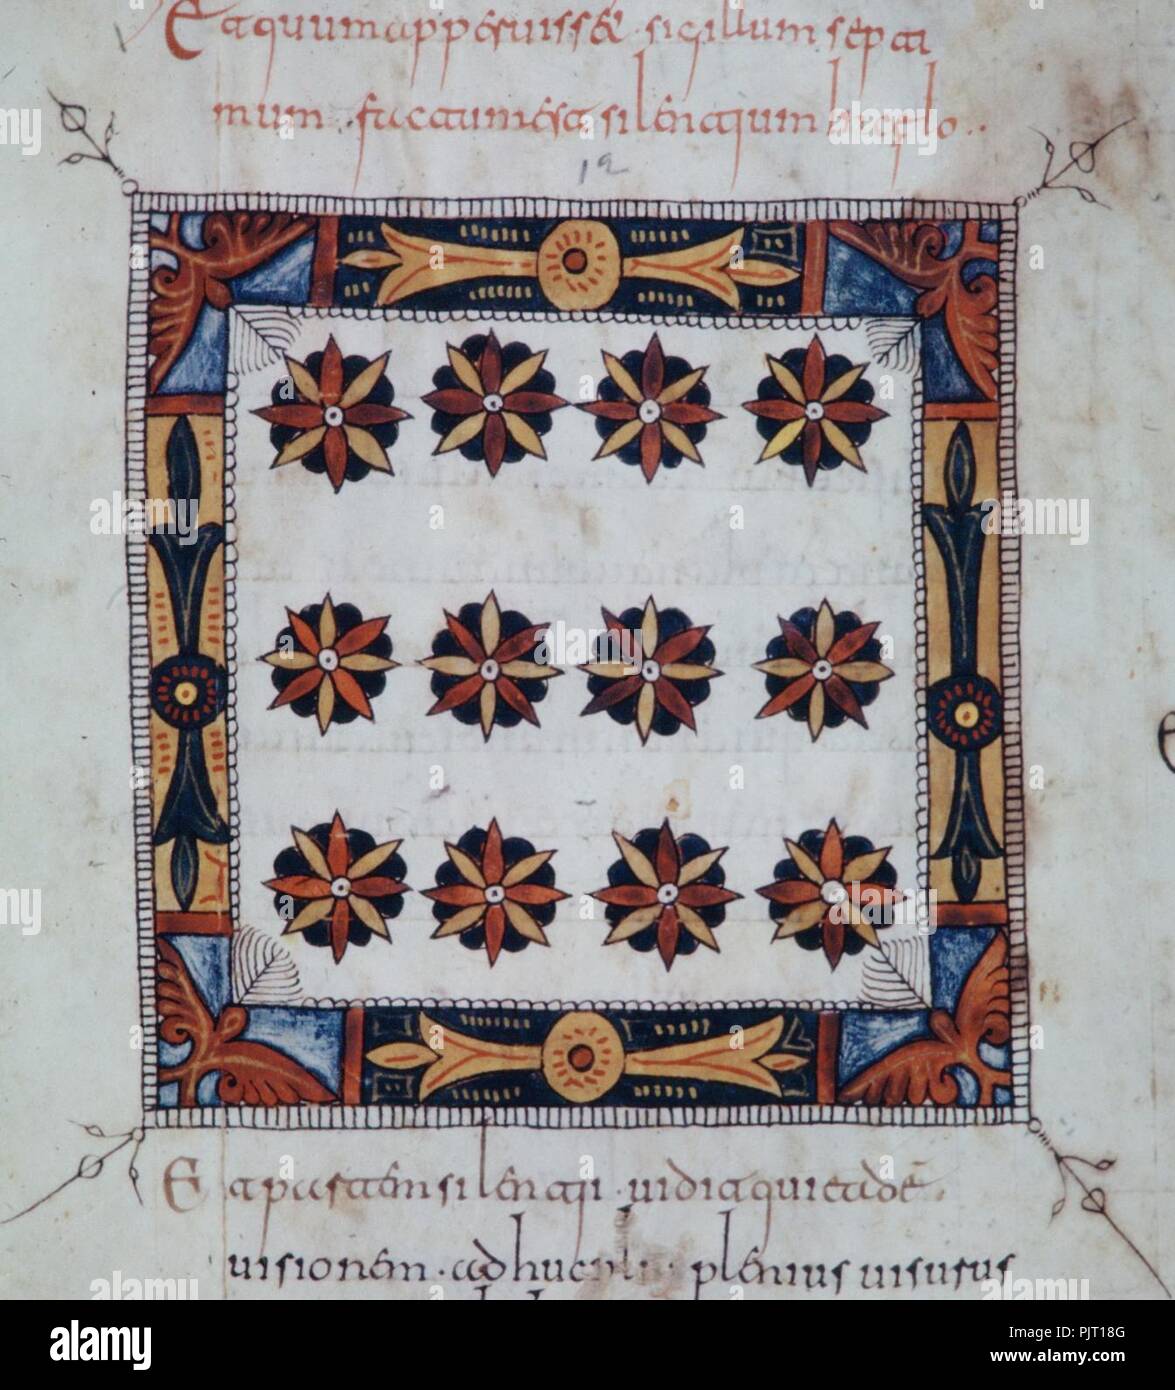 Et quum apperuisset sigillum septi
mum factum est silentium in celo..
Et pastem silentji uidit quietadē.
uisionem adhuc plenius uisurus
alamy
PJT18G
www.alamy.com